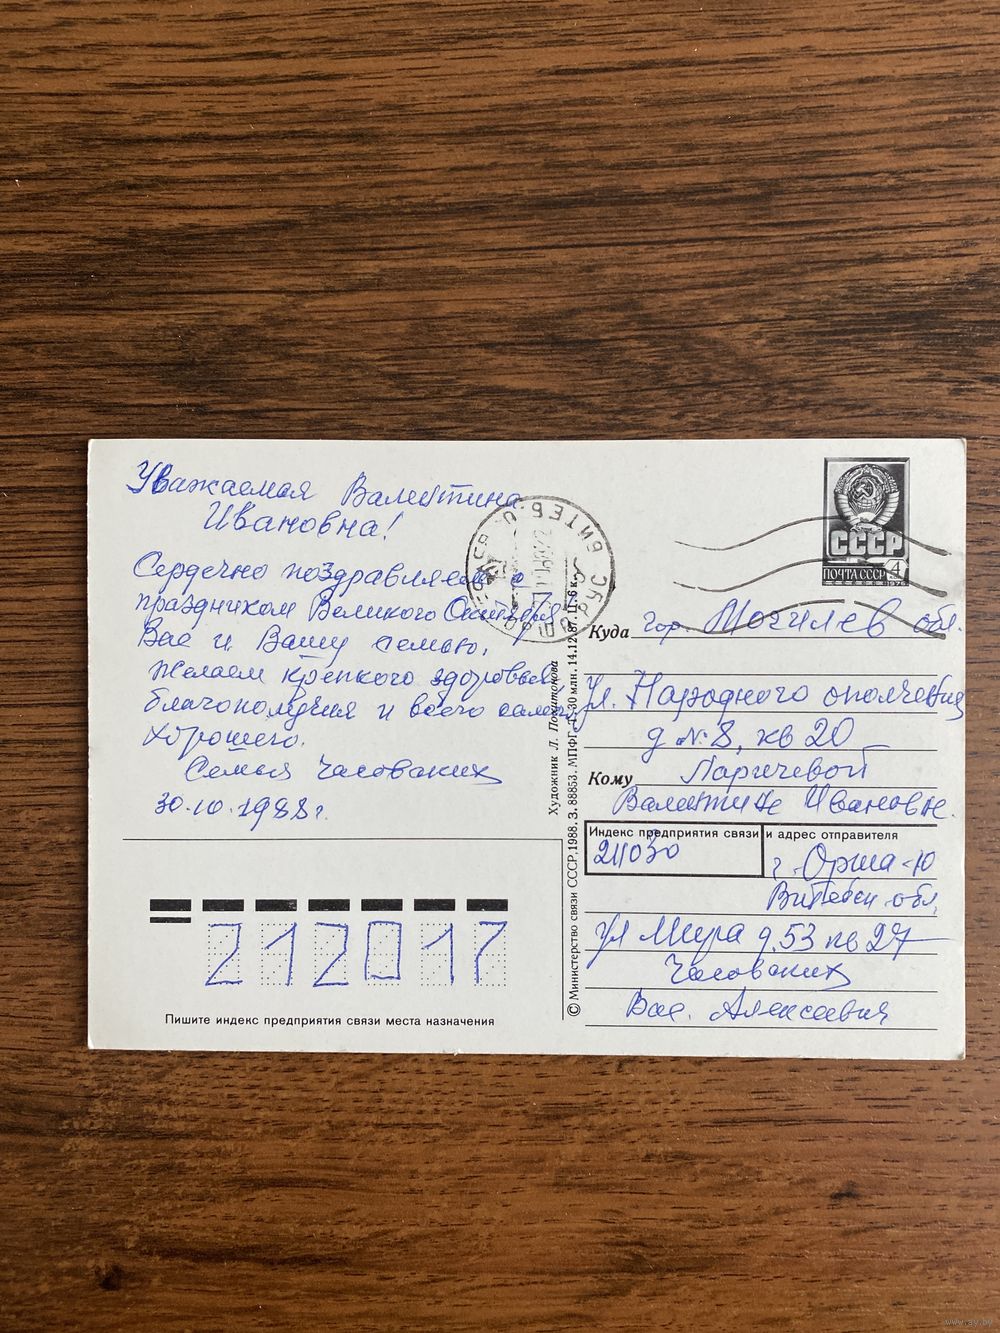 Уважаемая Валентина
Ивановна!
Сердечно поздравляем с
праздником Великого Октября
Вас и Вашу семью,
желаем крепкого здоровья
благополучия и всего самого
хорошего.
Семья Часовских
30.10.1988 г.
212017
Пишите индекс предприятия связи места назначения
© Министерство связи СССР, 1988. З. 88853. МПФГ. 30 млн. 14.12.87. Ц. 6 к.
Художник Л.
СССР
ПОЧТА СССР 4
1976
Куда гор. Могилев обл.
ул. Народного ополчения
д №8, кв 20
Кому Ларичевой
Валентине Ивановн.
Индекс предприятия связи и адрес отправителя
211030
г. Орша-10
Витебск обл.
ул Мира д. 53 кв 27
Часовских
Вас. Алексеевич
www.ay.by